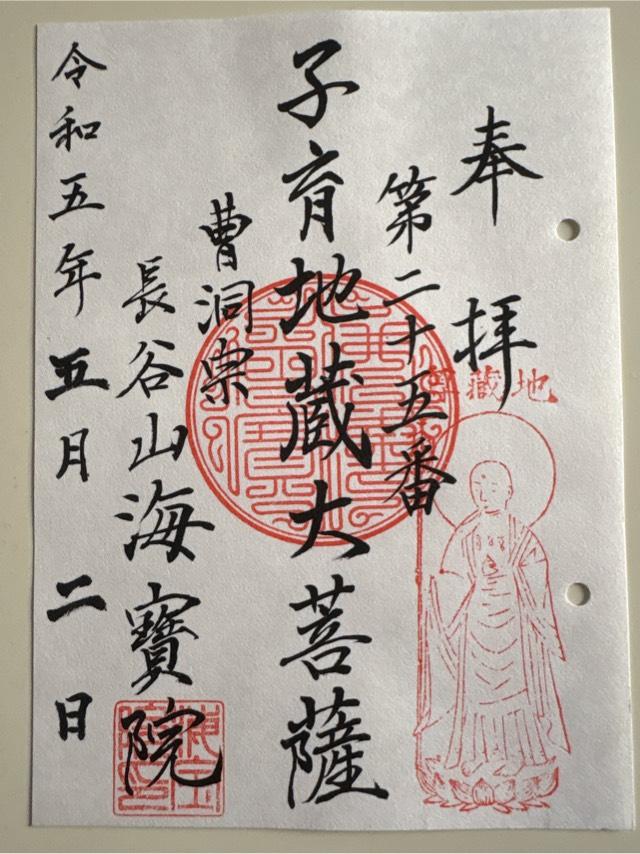 奉拝
地蔵尊
第二十五番
子育地蔵大菩薩
曹洞宗
長谷山海寶院
令和五年五月二日